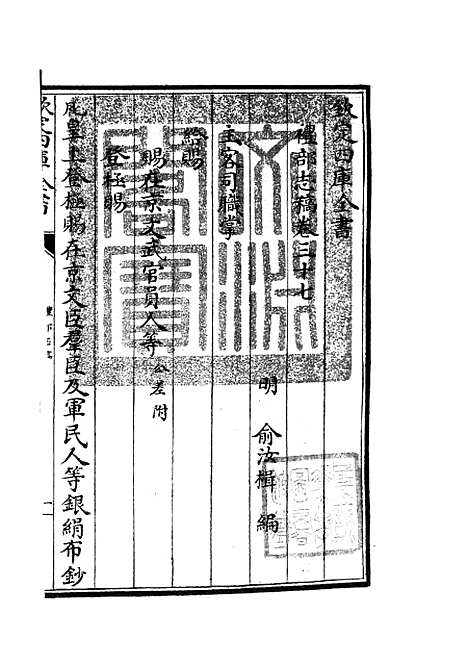 欽定四庫全書
禮部志稿卷三十七
明 俞汝楫 編
主客司職掌
給賜
賜在京文武官員人等 公差附
登極賜
凡皇上登極賜在京文臣群臣及軍民人等銀絹布鈔
欽定四庫全書